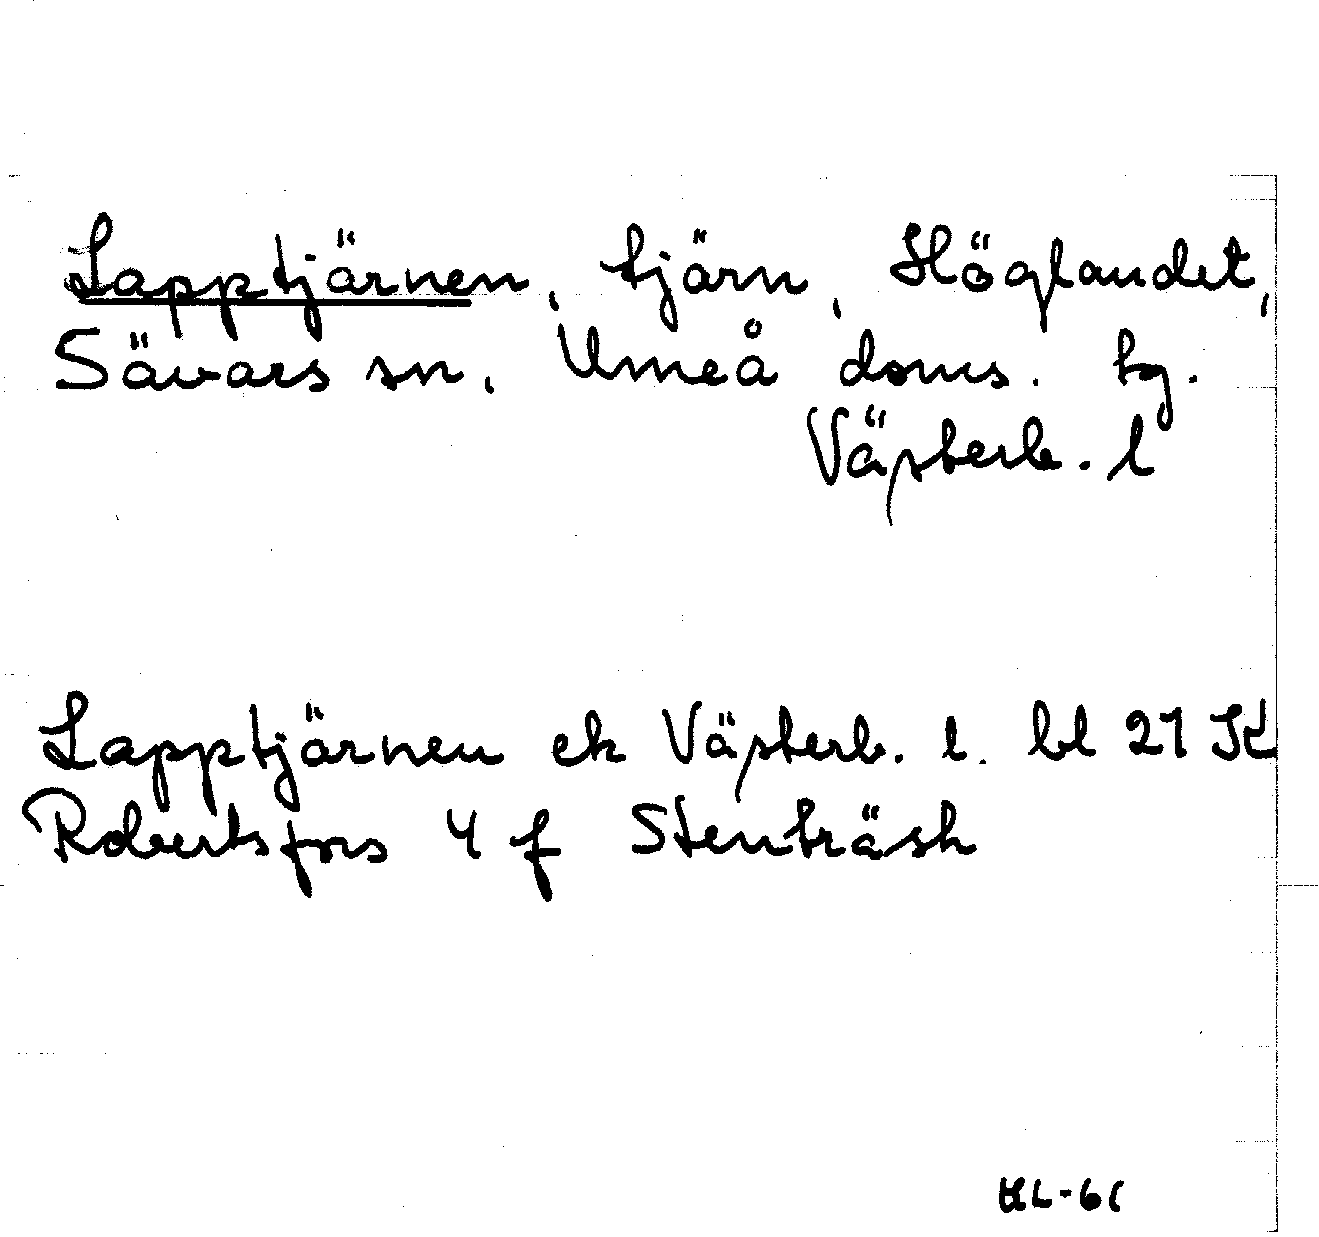 Lapptjärnen, tjärn, Höglandet,
Sävars sn, Umeå doms. tg.
Västerb. l
Lapptjärnen ek Västerb. l. bl 21 K
Robertsfors 4 f Stenträsk
KL-61